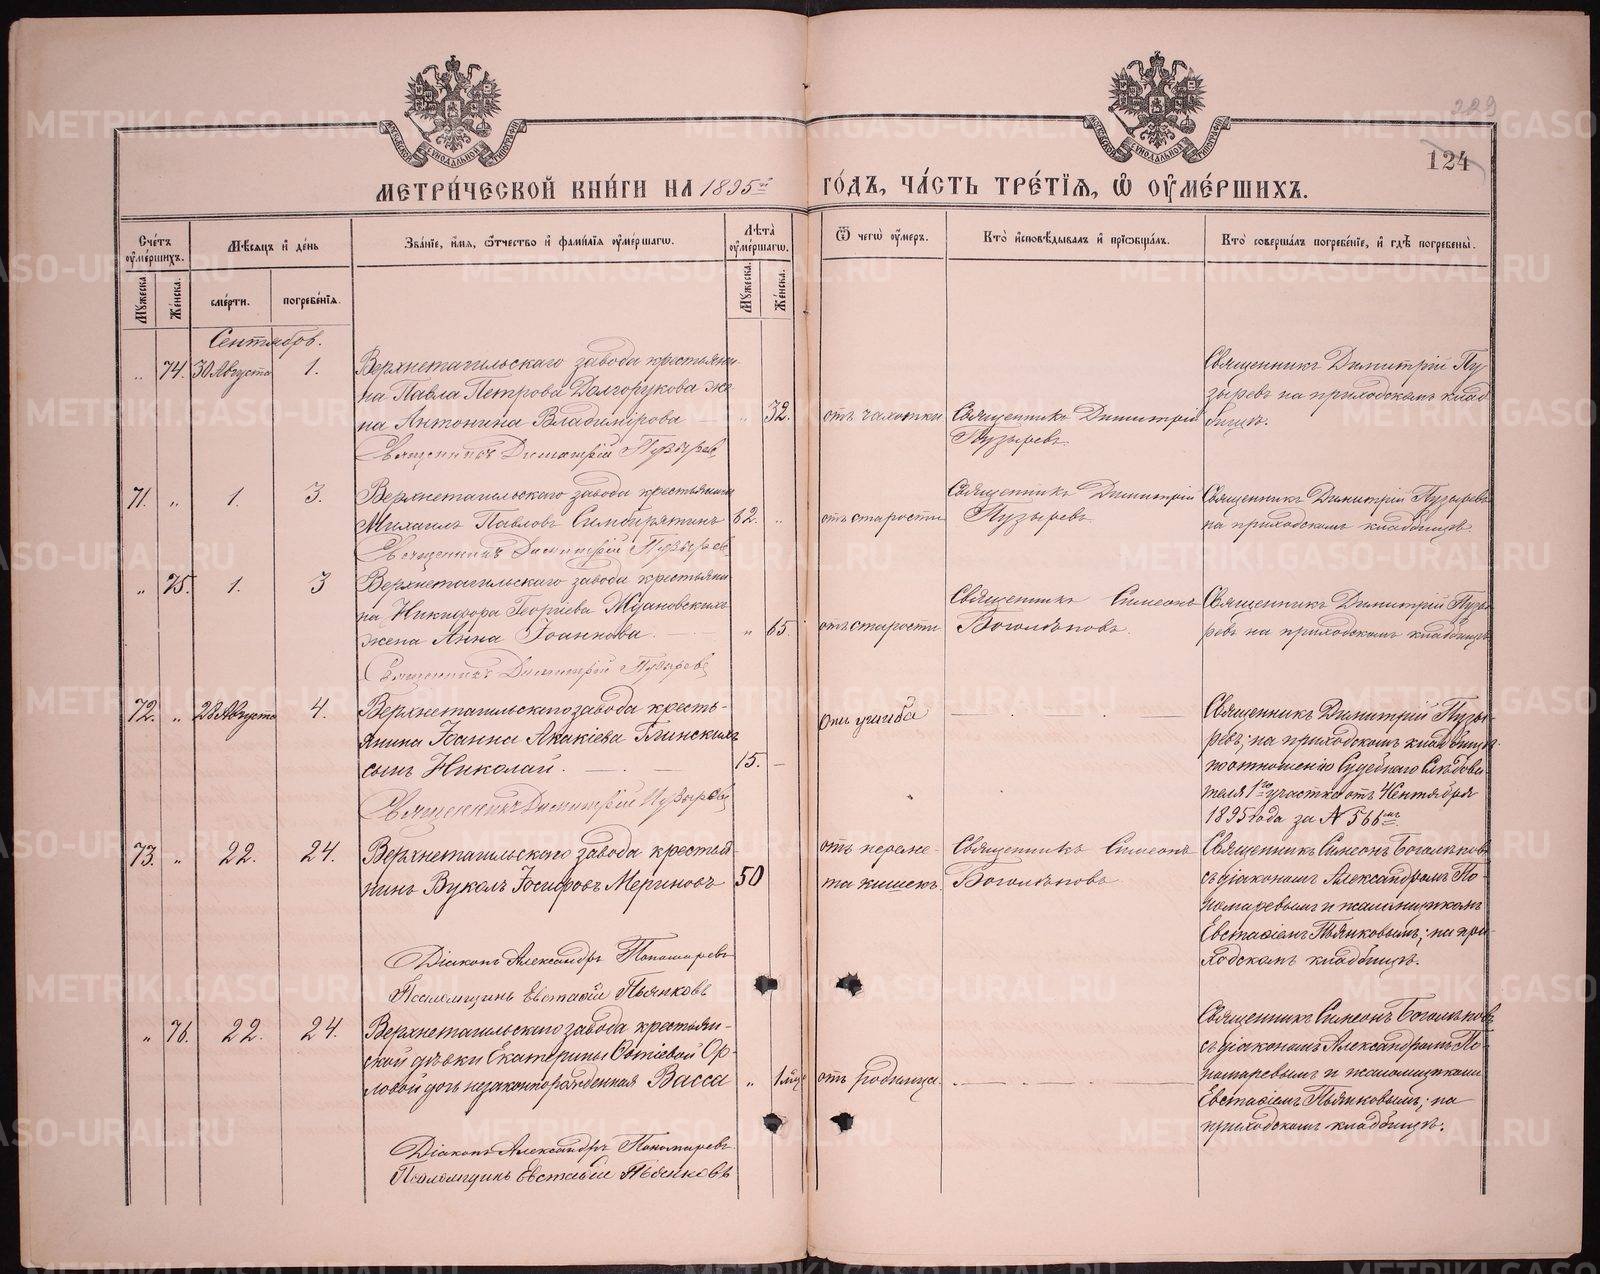 229
124
МЕТРИ́ЧЕСКОЙ КНИ́ГИ НА 1895й ГО́ДЪ, ЧА́СТЬ ТРЕ́ТІѦ, Ѡ҆ ОУ҆МЕ́РШИХЪ.
Сче́тъ оу҆ме́ршихъ.
Мѣ́сяцъ и҆ де́нь
Зва́нїе, и҆́мя, ѻ҆́тчество и҆ фами́лїя оу҆ме́ршагѡ.
Лѣ́та оу҆ме́ршагѡ.
Ѿ чегѡ̀ оу҆́меръ.
Кто̀ и҆сповѣ́дывалъ и҆ прїѡбща́лъ.
Кто̀ соверша́лъ погребе́нїе, и҆ гдѣ̀ погребены̀.
Мꙋ́жеска.
Же́нска.
сме́рти.
погребе́нїѧ.
Мꙋ́жеска.
Же́нска.
Сентябрь.
„ 74. 30 Августа 1.
Верхнетагильскаго завода крестьяни-
на Павла Петрова Долгорукова же
на Антонина Владимірова „ 32.
Священникъ Димитрій Пузыревъ
отъ чахотки
Священникъ Димитрій
Пузыревъ.
Священникъ Димитрій Пу
зыревъ на приходскомъ клад
бищѣ.
71. „ 1. 3.
Верхнетагильскаго завода крестьянинъ
Михаилъ Павловъ Симбирятинъ 62. „
Священникъ Димитрій Пузыревъ
отъ старости
Священникъ Димитрій
Пузыревъ
Священникъ Димитрій Пузыревъ
на приходскомъ кладбищѣ
„ 75. 1. 3
Верхнетагильскаго завода крестьяни
на Никифора Георгіева Ждановскихъ
жена Анна Іоаннова. „ 65.
Священникъ Димитрій Пузыревъ
отъ старости
Священникъ Симеонъ
Боголѣповъ.
Священникъ Димитрій Пузы
ревъ на приходскомъ кладбищѣ
72. „ 28 Августа 4.
Верхнетагильскаго завода кресть-
янина Іоанна Акакіева Глинскихъ
сынъ Николай. 15. -
Священникъ Димитрій Пузыревъ
Отъ ушиба
Священникъ Димитрій Пузы-
ревъ; на приходскомъ кладбищѣ
по отношенію Судебнаго Слѣдова-
теля 1го участка отъ Сентября
1895 года за № 566мъ
73. „ 22. 24.
Верхнетагильскаго завода крестья-
нинъ Вуколъ Іосифовъ Мериновъ 50
Діаконъ Александръ Пономаревъ
Псаломщикъ Евстафій Пьянковъ
Священникъ Симеонъ
Боголѣповъ
Священникъ Симеонъ Боголѣповъ
съ діакономъ Александромъ По-
номаревымъ и псаломщикомъ
Евстафіемъ Пьянковымъ; на при-
ходскомъ кладбищѣ.
„ 76. 22. 24.
Верхнетагильскаго завода крестьян-
ской дѣвки Екатерины Ор-
ловой дочь незаконнорожденная Васса „ 1 мѣс
Діаконъ Александръ Пономаревъ
Псаломщикъ Евстафій Пьянковъ
отъ родимца.
Священникъ Симеонъ Боголѣповъ
съ діакономъ Александромъ По-
номаревымъ и псаломщикомъ
Евстафіемъ Пьянковымъ; на
приходскомъ кладбищѣ.
METRIKI.GASO-URAL.RU